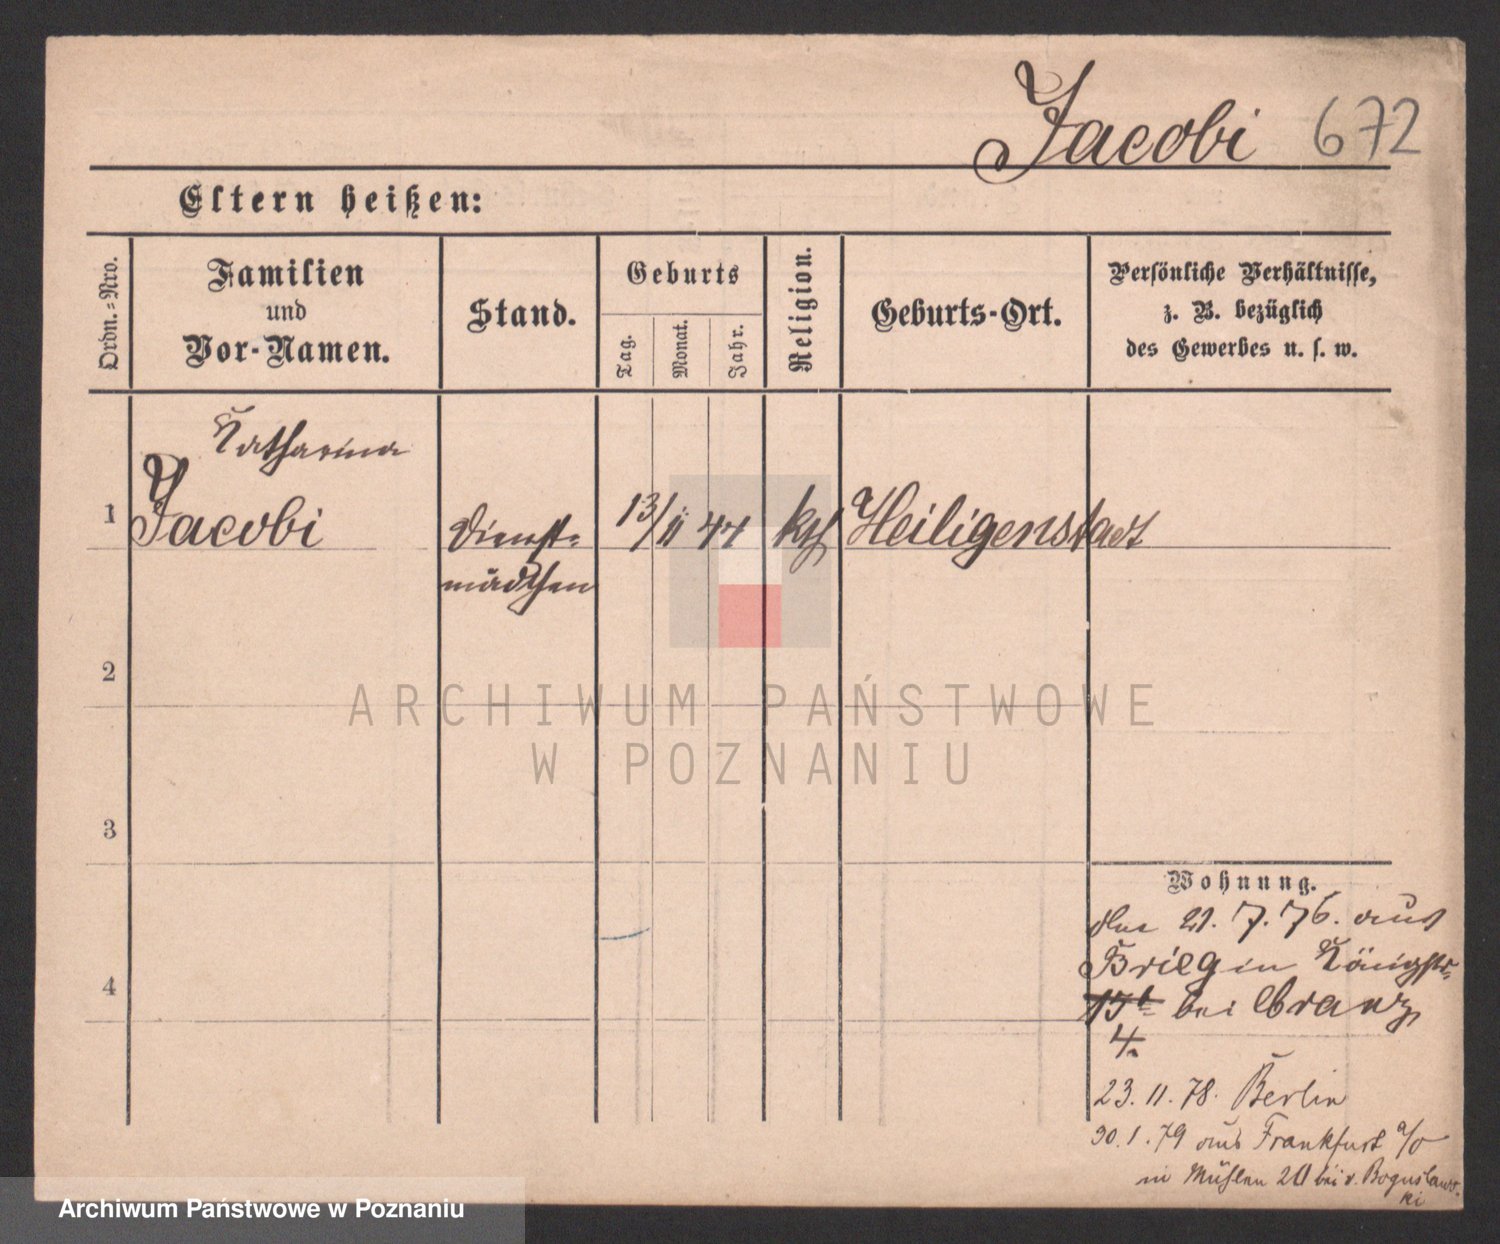 Jacobi 672
Eltern heißen:
Ordn.-Nro.
Familien
und
Vor-Namen.
Stand.
Geburts
Tag.
Monat.
Jahr.
Religion.
Geburts-Ort.
Persönliche Verhältnisse,
z. B. bezüglich
des Gewerbes u. s. w.
Katharina
1 Jacobi Dienst- 13/11 44 kth Heiligenstadt
mädchen
2
3
4
Wohnung.
21. 7. 76. aus
Brieg in Königstr.
15b bei Cranz
4.
23. 11. 78. Berlin
30. 1. 79 aus Frankfurt a/O
in Mühlen 20 bei v. Boguslaws-
ki
ARCHIWUM PAŃSTWOWE
W POZNANIU
Archiwum Państwowe w Poznaniu